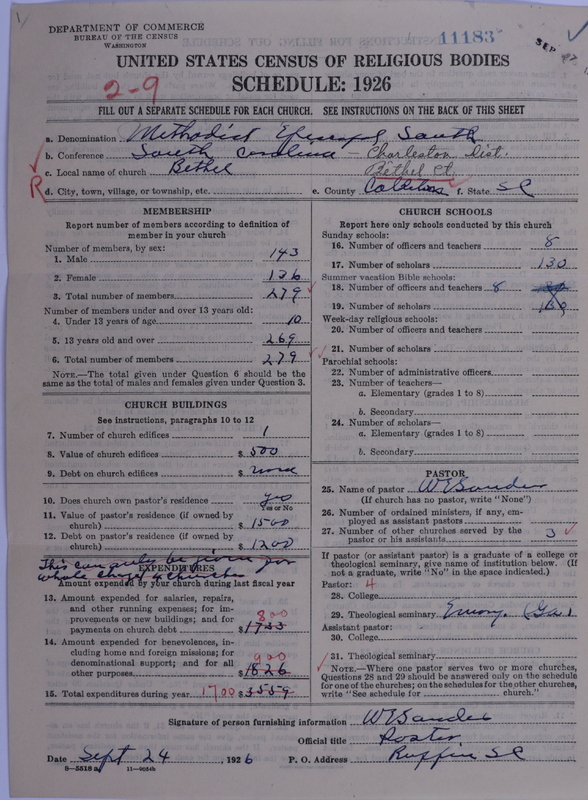 DEPARTMENT OF COMMERCE
BUREAU OF THE CENSUS
WASHINGTON
11183
SEP 27
UNITED STATES CENSUS OF RELIGIOUS BODIES
SCHEDULE: 1926
2-9
FILL OUT A SEPARATE SCHEDULE FOR EACH CHURCH. SEE INSTRUCTIONS ON THE BACK OF THIS SHEET
a. Denomination Methodist Episcopal South
b. Conference South Carolina - Charleston Dist.
c. Local name of church Bethel Bethel Ct.
R d. City, town, village, or township, etc. e. County Colleton f. State S C
MEMBERSHIP
Report number of members according to definition of member in your church
Number of members, by sex:
1. Male 143
2. Female 136
3. Total number of members 279
Number of members under and over 13 years old:
4. Under 13 years of age 10
5. 13 years old and over 269
6. Total number of members 279
NOTE.—The total given under Question 6 should be the same as the total of males and females given under Question 3.
CHURCH BUILDINGS
See instructions, paragraphs 10 to 12
7. Number of church edifices 1
8. Value of church edifices $ 500
9. Debt on church edifices $ none
10. Does church own pastor's residence yes
Yes or No
11. Value of pastor's residence (if owned by church) $ 1500
12. Debt on pastor's residence (if owned by church) $ 1200
This can only be given for
whole charge 4 churches
EXPENDITURES
Amount expended by your church during last fiscal year
13. Amount expended for salaries, repairs, and other running expenses; for improvements or new buildings; and for payments on church debt 800 $ 1733
14. Amount expended for benevolences, including home and foreign missions; for denominational support; and for all other purposes 900 $ 1826
15. Total expenditures during year 1700 $ 3559
CHURCH SCHOOLS
Report here only schools conducted by this church
Sunday schools:
16. Number of officers and teachers 8
17. Number of scholars 130
Summer vacation Bible schools:
18. Number of officers and teachers 8
19. Number of scholars
Week-day religious schools:
20. Number of officers and teachers
21. Number of scholars
Parochial schools:
22. Number of administrative officers
23. Number of teachers—
a. Elementary (grades 1 to 8)
b. Secondary
24. Number of scholars—
a. Elementary (grades 1 to 8)
b. Secondary
PASTOR
25. Name of pastor W E Sanders
(If church has no pastor, write "None")
26. Number of ordained ministers, if any, employed as assistant pastors
27. Number of other churches served by the pastor or his assistants 3
If pastor (or assistant pastor) is a graduate of a college or theological seminary, give name of institution below. (If not a graduate, write "No" in the space indicated.)
Pastor: 4
28. College
29. Theological seminary Emory. (Ga.)
Assistant pastor:
30. College
31. Theological seminary
NOTE.—Where one pastor serves two or more churches, Questions 28 and 29 should be answered only on the schedule for one of the churches; on the schedules for the other churches, write "See schedule for ________ church."
Signature of person furnishing information W E Sanders
Official title Pastor
Date Sept 24, 1926 P. O. Address Ruffin S C
8—5518 a 11—9024b